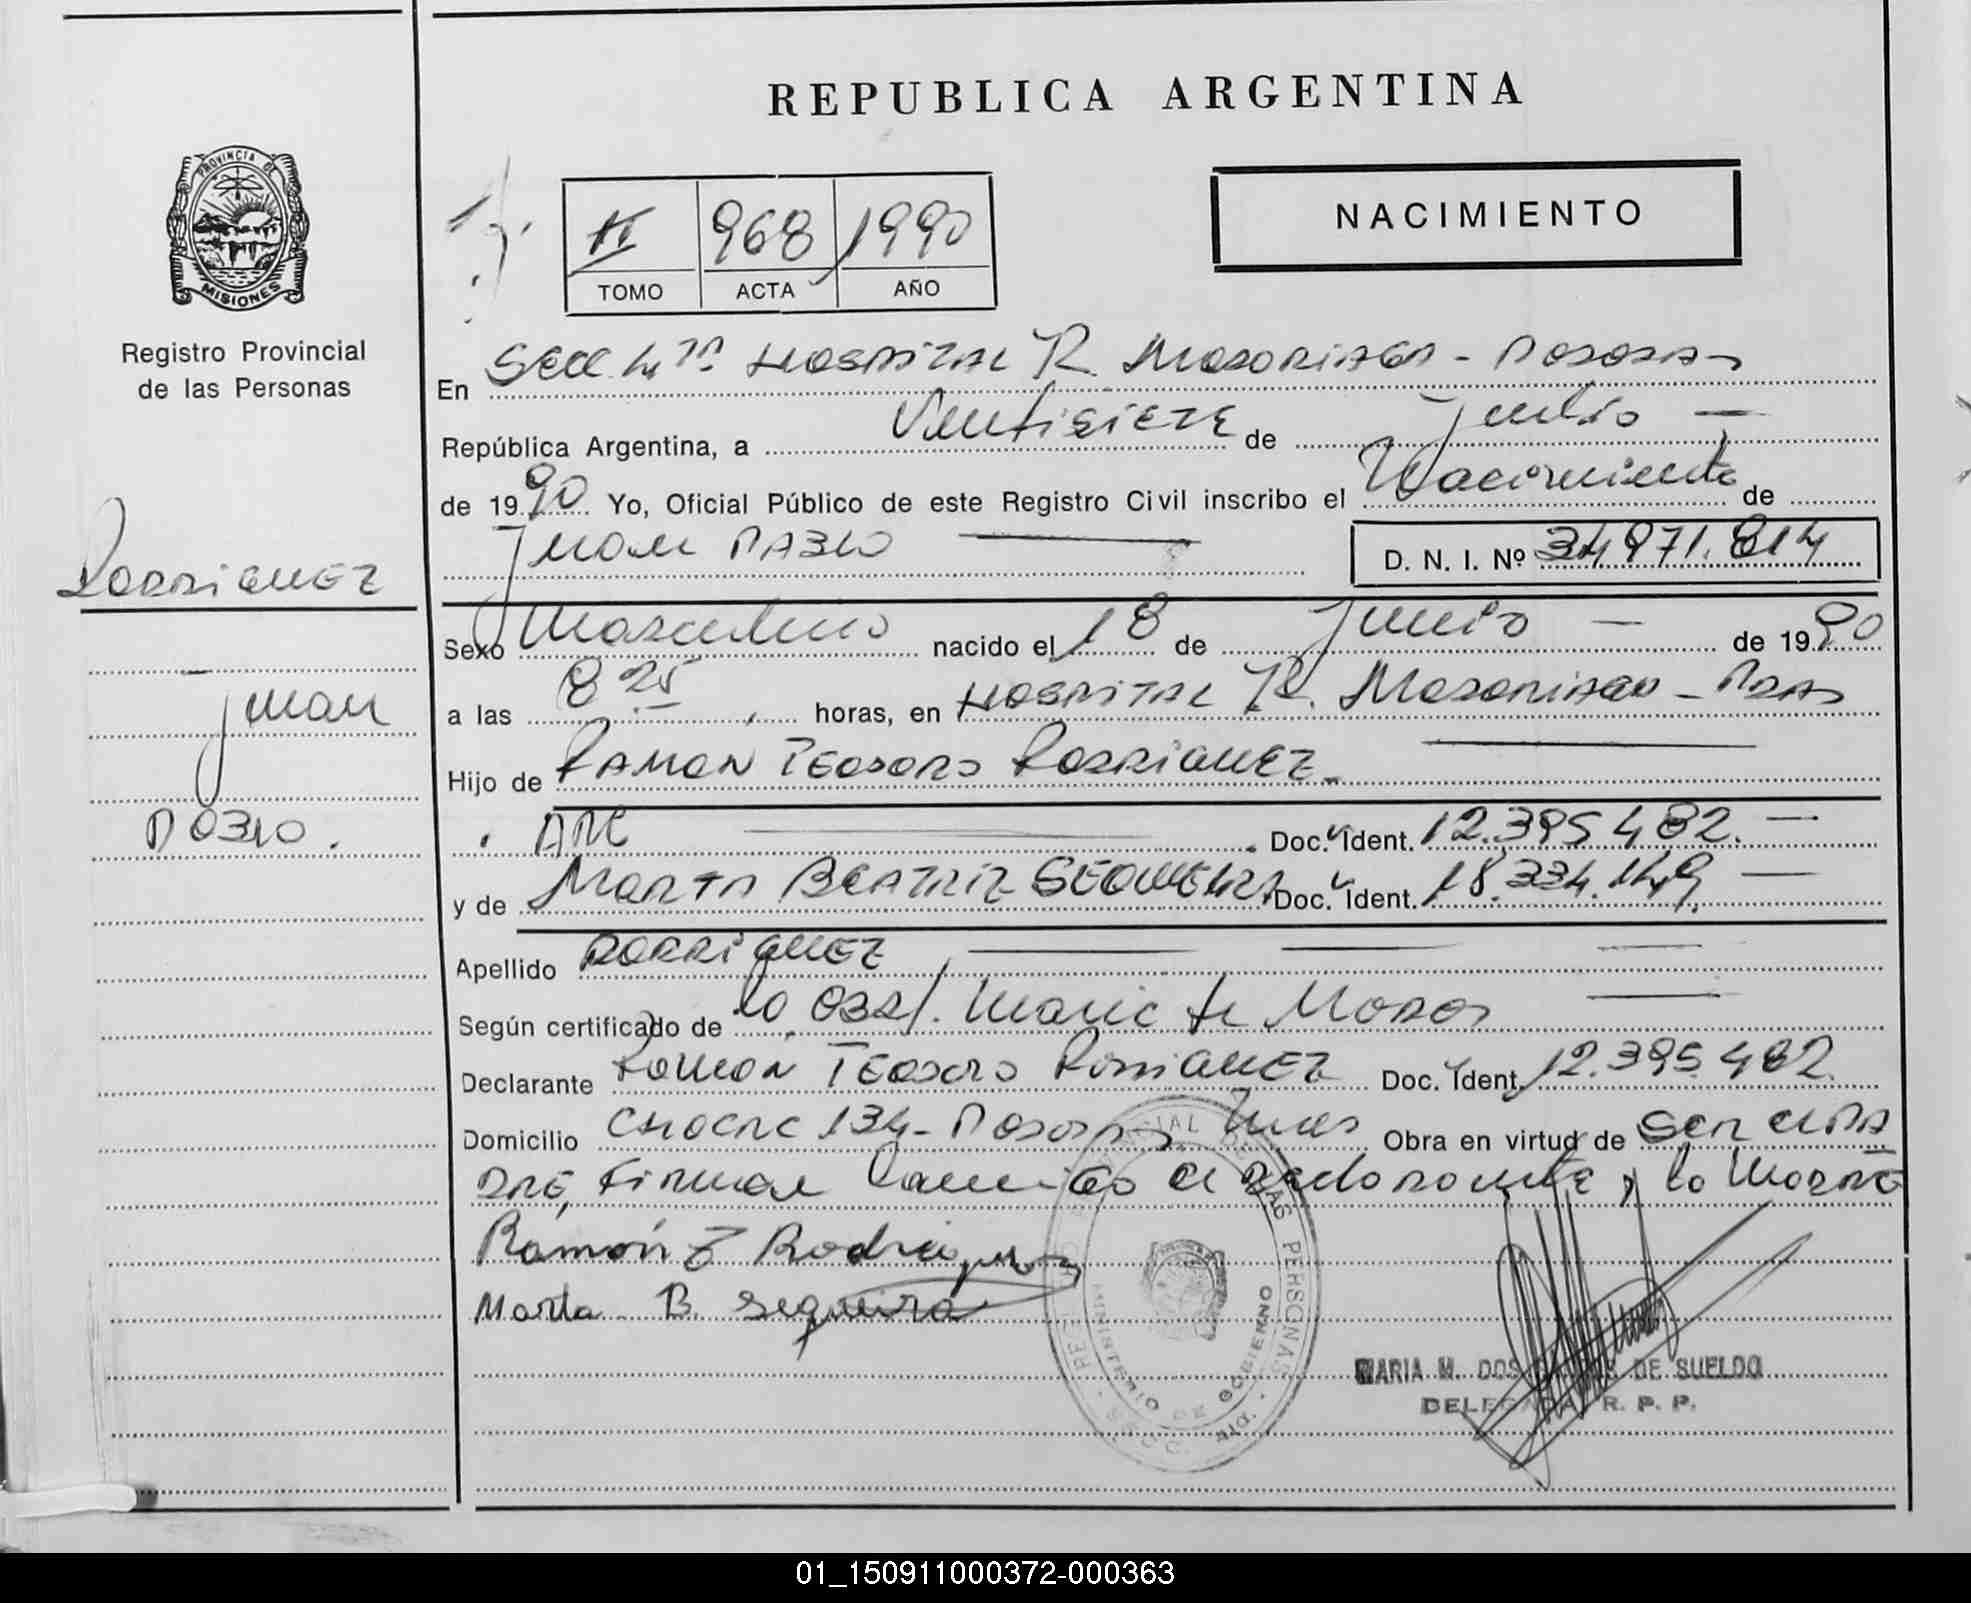 REPUBLICA ARGENTINA
PROVINCIA DE
MISIONES
Registro Provincial
de las Personas
II 968 1990
TOMO ACTA AÑO
NACIMIENTO
En Secc. 4ta HOSPITAL R. Madariaga - Posadas
República Argentina, a Ventisiete de Julio
de 1990 Yo, Oficial Público de este Registro Civil inscribo el Nacimiento de
Juan Pablo D. N. I. Nº 34.971.814
Rodriguez
Juan
Pablo.
Sexo Masculino nacido el 18 de Junio de 1990
a las 8 25 horas, en HOSPITAL R. Madariaga - Pdas
Hijo de RAMON TEODORO RODRIGUEZ
ARG Doc. Ident. 12.395.482.
y de MARTA BEATRIZ SEQUEIRA Doc. Ident. 18.334.149
Apellido RODRIGUEZ
Según certificado de la Obst. Marie de
Declarante Ramon TEODORO Rodriguez Doc. Ident. 12.395.482
Domicilio 134 - Posadas Mnes Obra en virtud de ser el PA
DRE, Firman conmigo el declarante y la Madre
Ramón T Rodriguez
Marta B. Sequeira
MINISTERIO DE GOBIERNO
MARIA M. DOS SANTOS DE SUELDO
DELEGADA R. P. P.
01_150911000372-000363